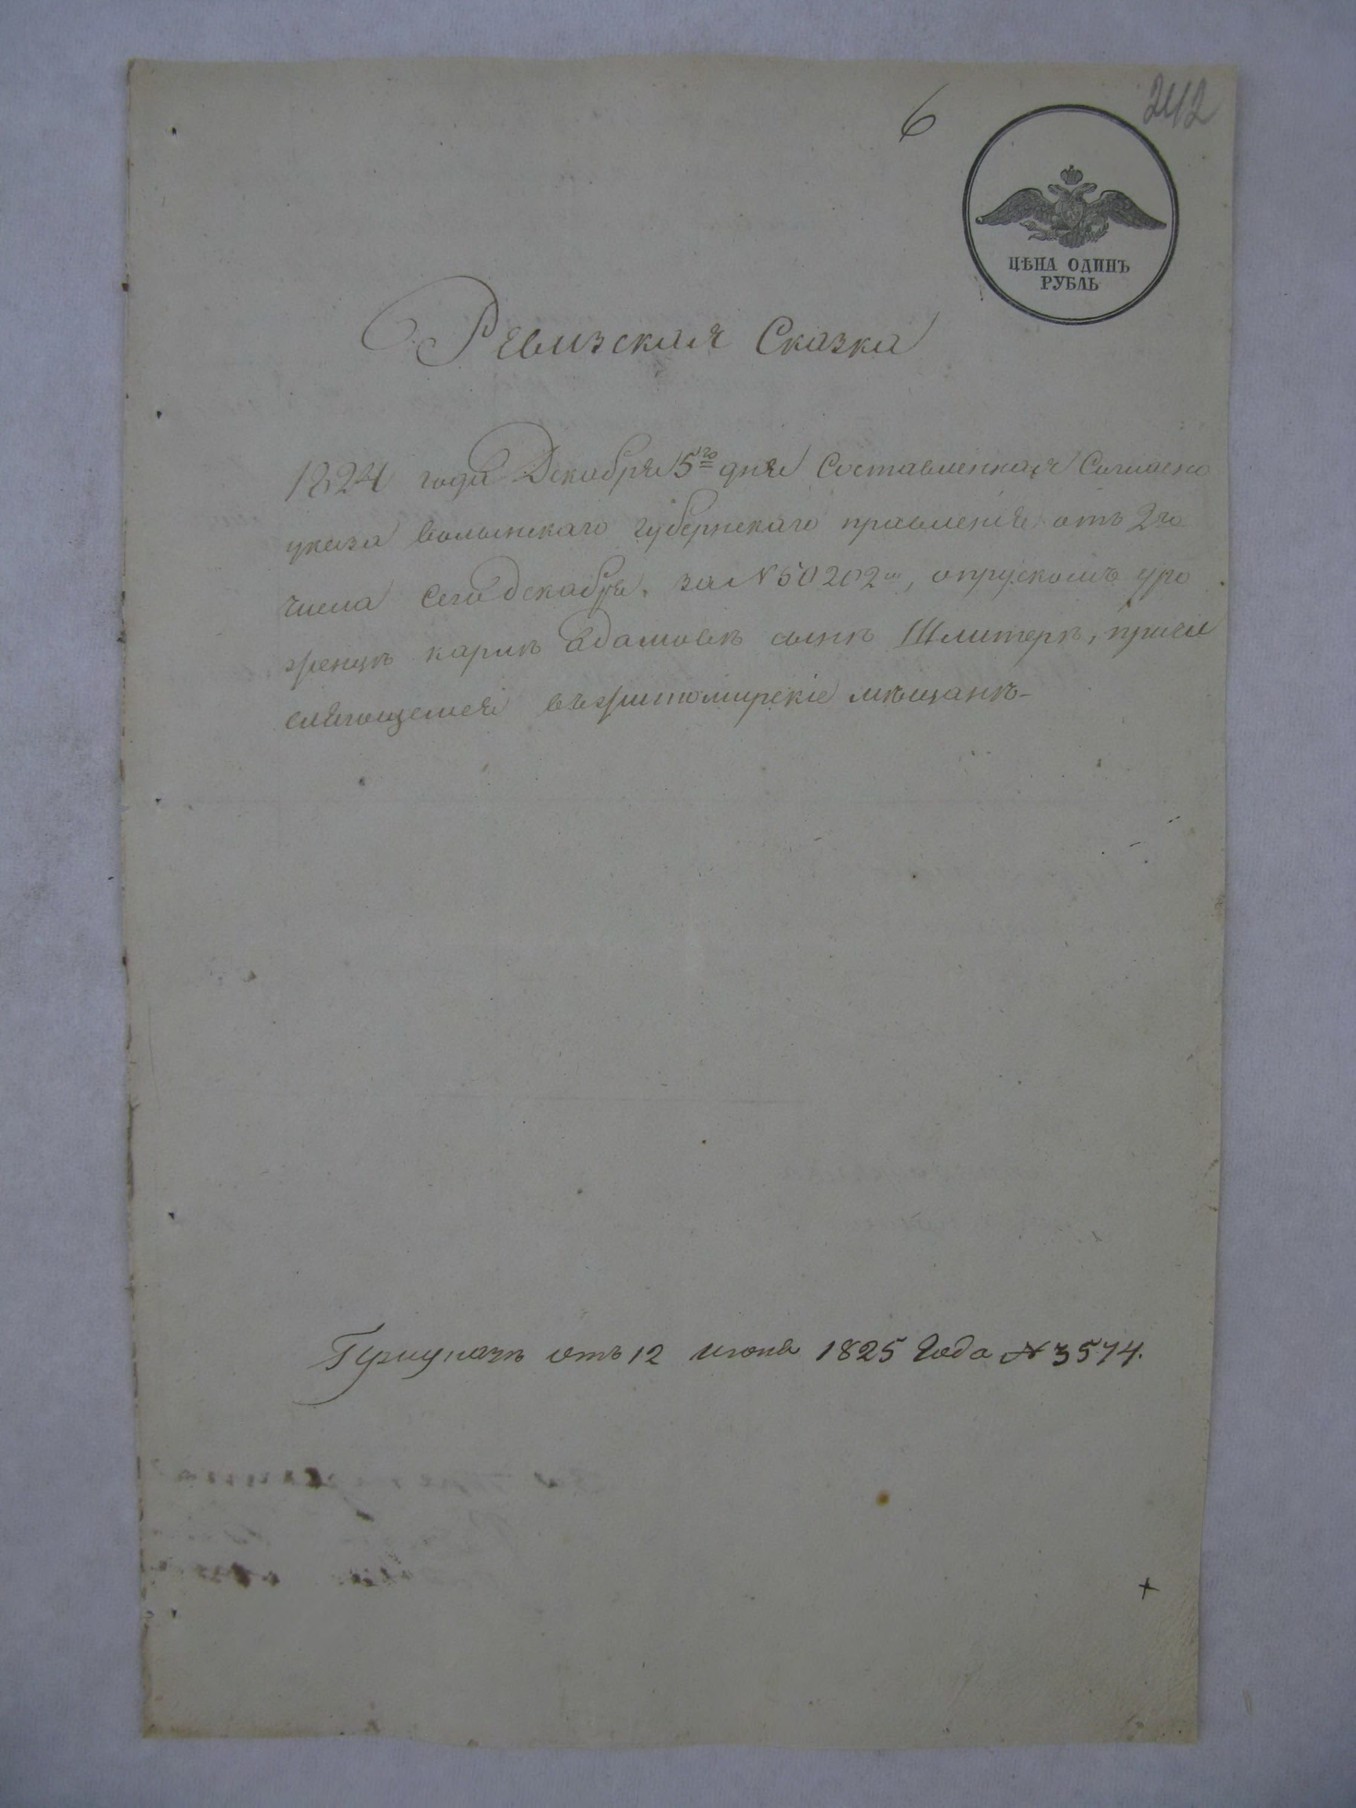 6
242
ЦѢНА ОДИНЪ
РУБЛЬ
Ревизская Сказка
1824 года Декабря 5го дня Составленная Согласно
указа волынскаго губернскаго правления отъ 2го
числа сего декабря, за №50202м, опрускомъ уро
женцѣ карлѣ адамовѣ сынѣ Шлитерѣ, причи
сляющемся въ житомирскіе мѣщанѣ
отъ 12 июня 1825 Года № 3574.